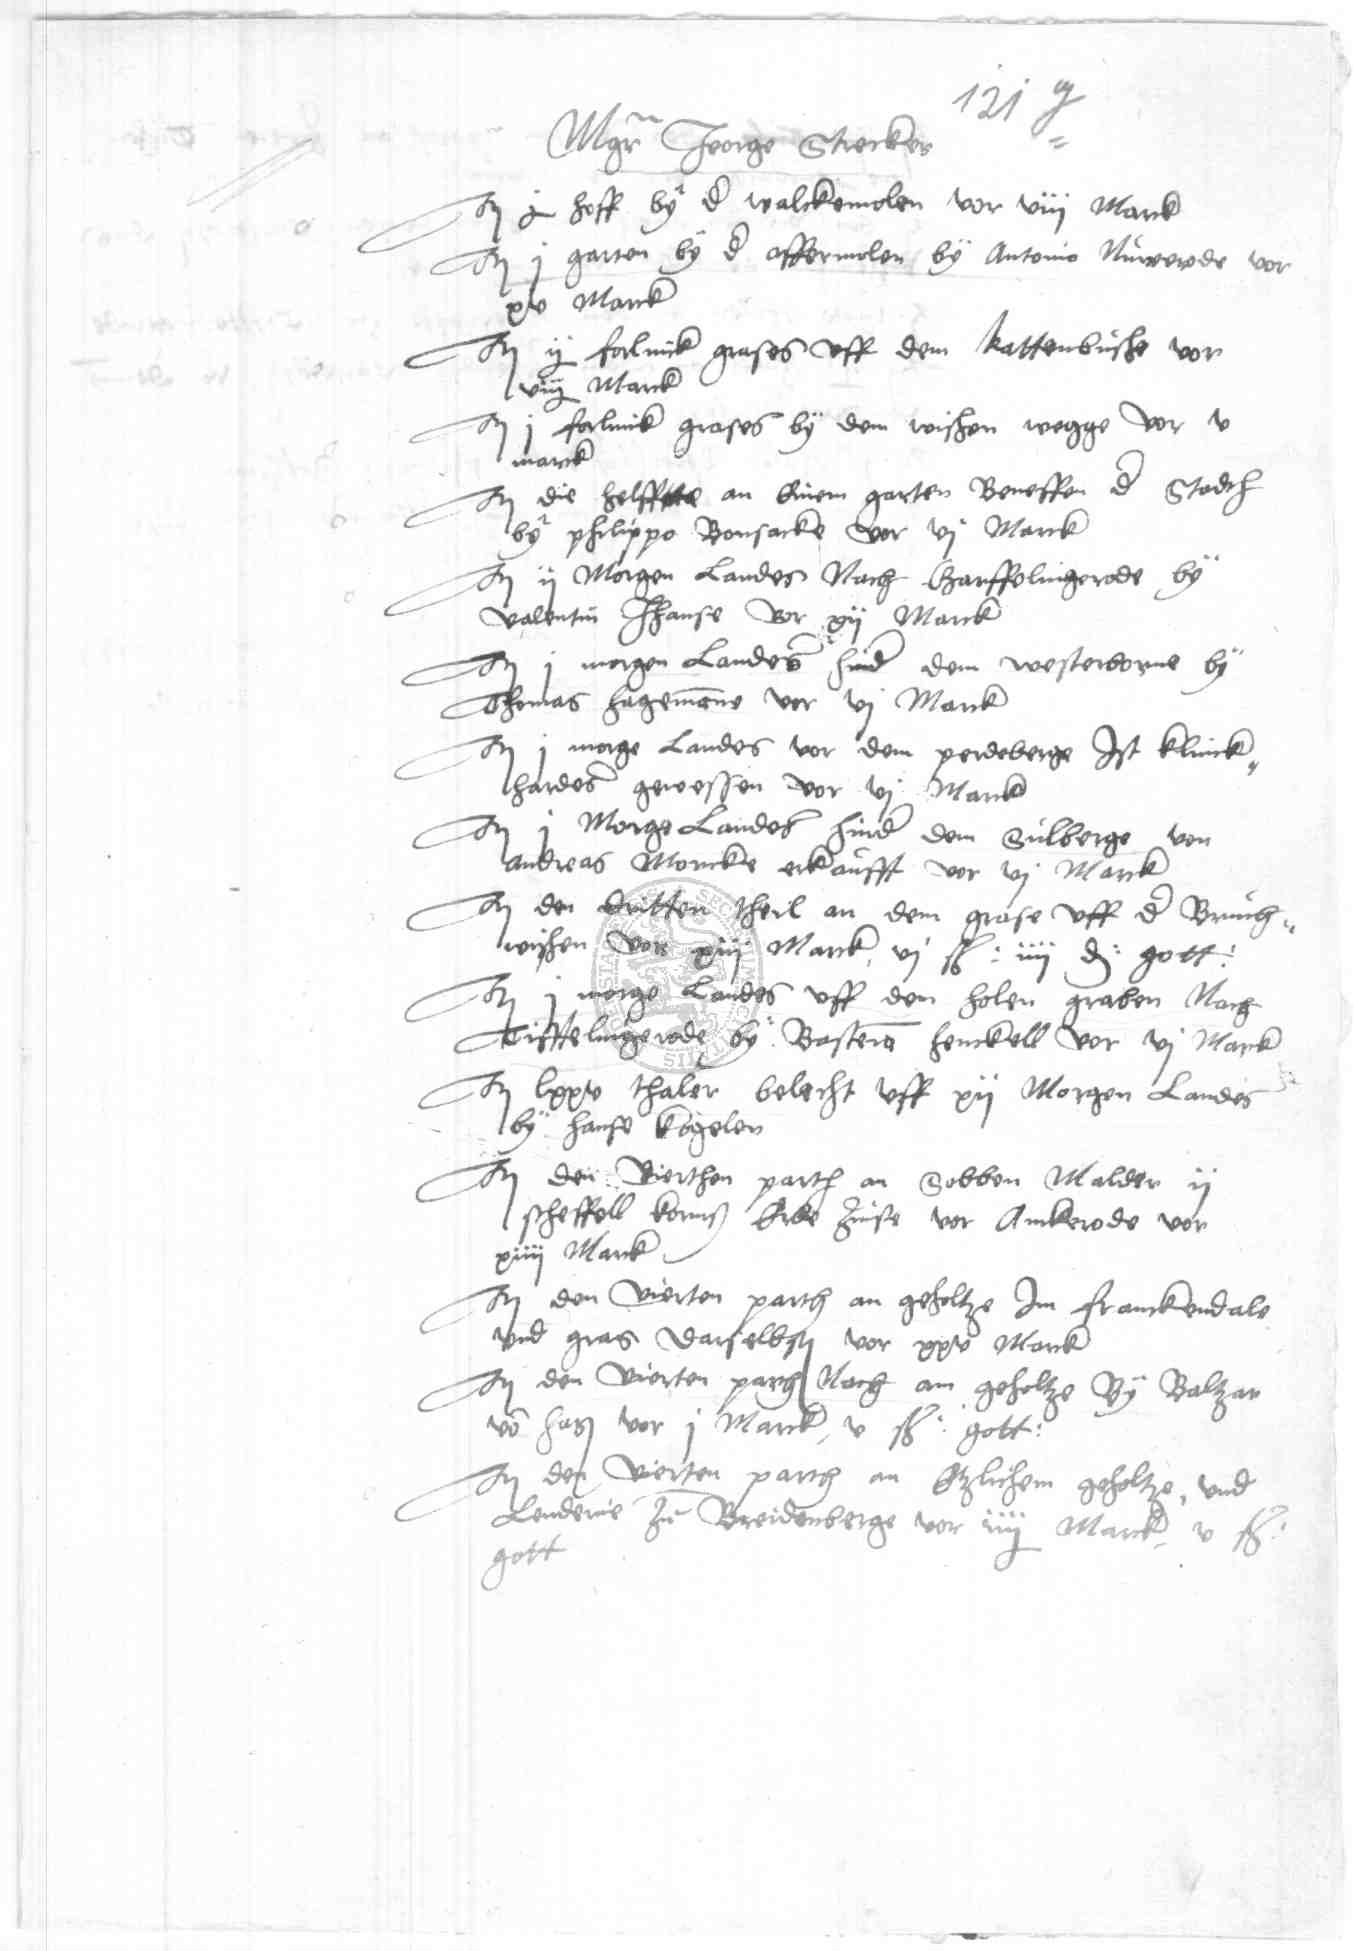 121
Mgr Jeorge Strecker
It j hoff by d walckemolen vor viij Marck
It j garten by d offermolen by Antonio vor
xv Marck
It ij forlinck grases uff dem kattenbusche vor
viij Marck
It j forlinck grases by dem wegge vor v
marck
It die helffte an einem garten Beneffen d Stadth
by philippo Bonsacke vor vj Marck
It ij Morgen Landes Nach by
valentin Hanse vor xij Marck
It j morgen Landes hind dem westerborne by
Thomas hagemans vor vj Marck
It j morge Landes vor dem perdeberge Ist klinck
hardes gewessen vor vj Marck
It j Morge Landes hind dem Sulberge von
andreas Moncke erkaufft vor vj Marck
It den dritten theil an dem grase uff d Bruch
wischen vor xiij Marck vj ß: iiij d: gott:
It j morge Landes uff den holen graben Nach
by henckell vor vj Marck
It lxxv thaler belecht uff xij Morgen Landes
by hanse kogelen
It den Vierthen parth an Sobben Malder ij
scheffell korns Erbe Zinse vor Ankerode vor
xiiij Marck
It den vierten parth an geholtze Im franckendale
vnd gras darselbst vor xxv Marck
It den vierten parth Nach am geholtze By Baltzar
vo vor j Marck, v ß: gott:
It den vierten parth an Etzlichem geholtze, vnd
Lenderie Zu Breidenberge vor iiij Marck, v ß:
gott